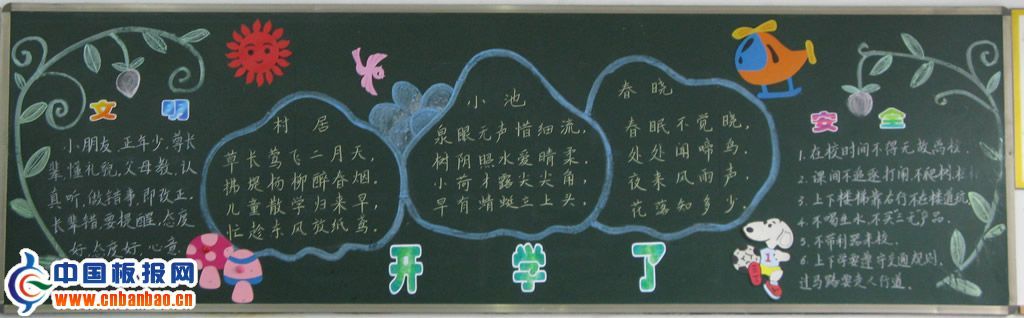 文 明
小朋友,正年少,尊长
辈,懂礼貌,父母教,认
真听,做错事,即改正。
长辈错,要提醒,态度
好,态度好,心意
村居
草长莺飞二月天,
拂堤杨柳醉春烟。
儿童散学归来早,
忙趁东风放纸鸢。
小池
泉眼无声惜细流,
树阴照水爱晴柔。
小荷才露尖尖角,
早有蜻蜓立上头。
春晓
春眠不觉晓,
处处闻啼鸟。
夜来风雨声,
花落知多少。
安 全
1.在校时间不得无故离校。
2.课间不追逐打闹不爬树
3.上下楼梯靠右行不在楼道玩
4.不喝生水,不买三无产品。
5.不带利器来校。
6.上下学要遵守交通规则,
过马路要走人行道。
开学了
中国板报网
www.cnbanbao.cn